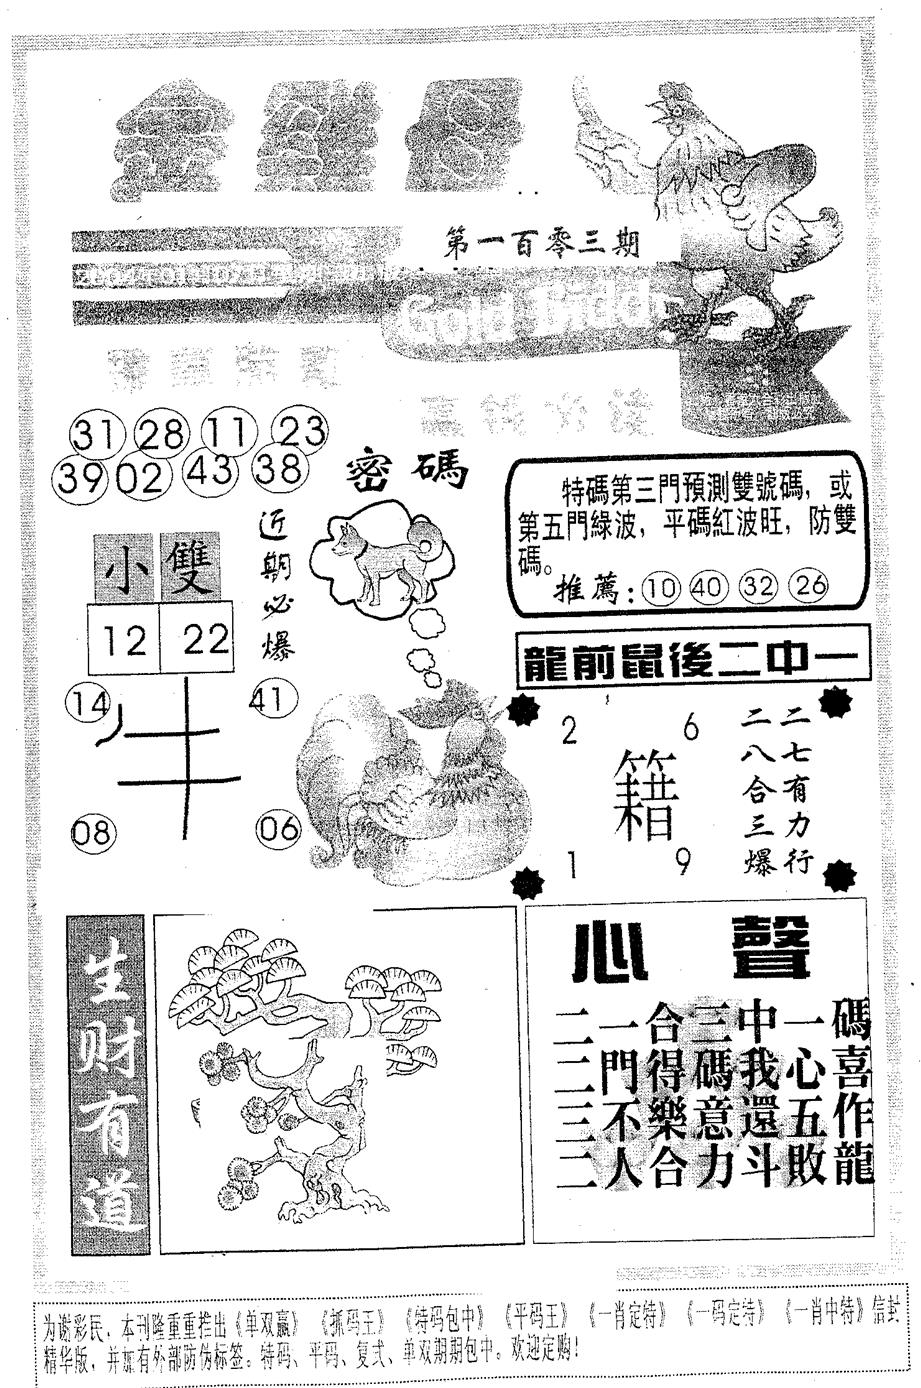 第一百零三期
Gold Bidd
31 28 11 23
39 02 43 38
密碼
特碼第三門預測雙號碼，或
第五門綠波，平碼紅波旺，防雙
碼。
推薦：10 40 32 26
近期必爆
小 雙
12 22
龍前鼠後二中一
14 41
牛
08 06
2 6
籍
1 9
二七有力行
二八合三爆
生财有道
心聲
二一合三中一碼
二門得碼我心喜
三不樂意還五作
二人合力斗敗龍
为谢彩民，本刊隆重重推出《单双赢》《抓码王》《特码包中》《平码王》《一肖定特》《一码定特》《一肖中特》信封
精华版，并加有外部防伪标签。特码、平码、复式、单双期期包中。欢迎定购！